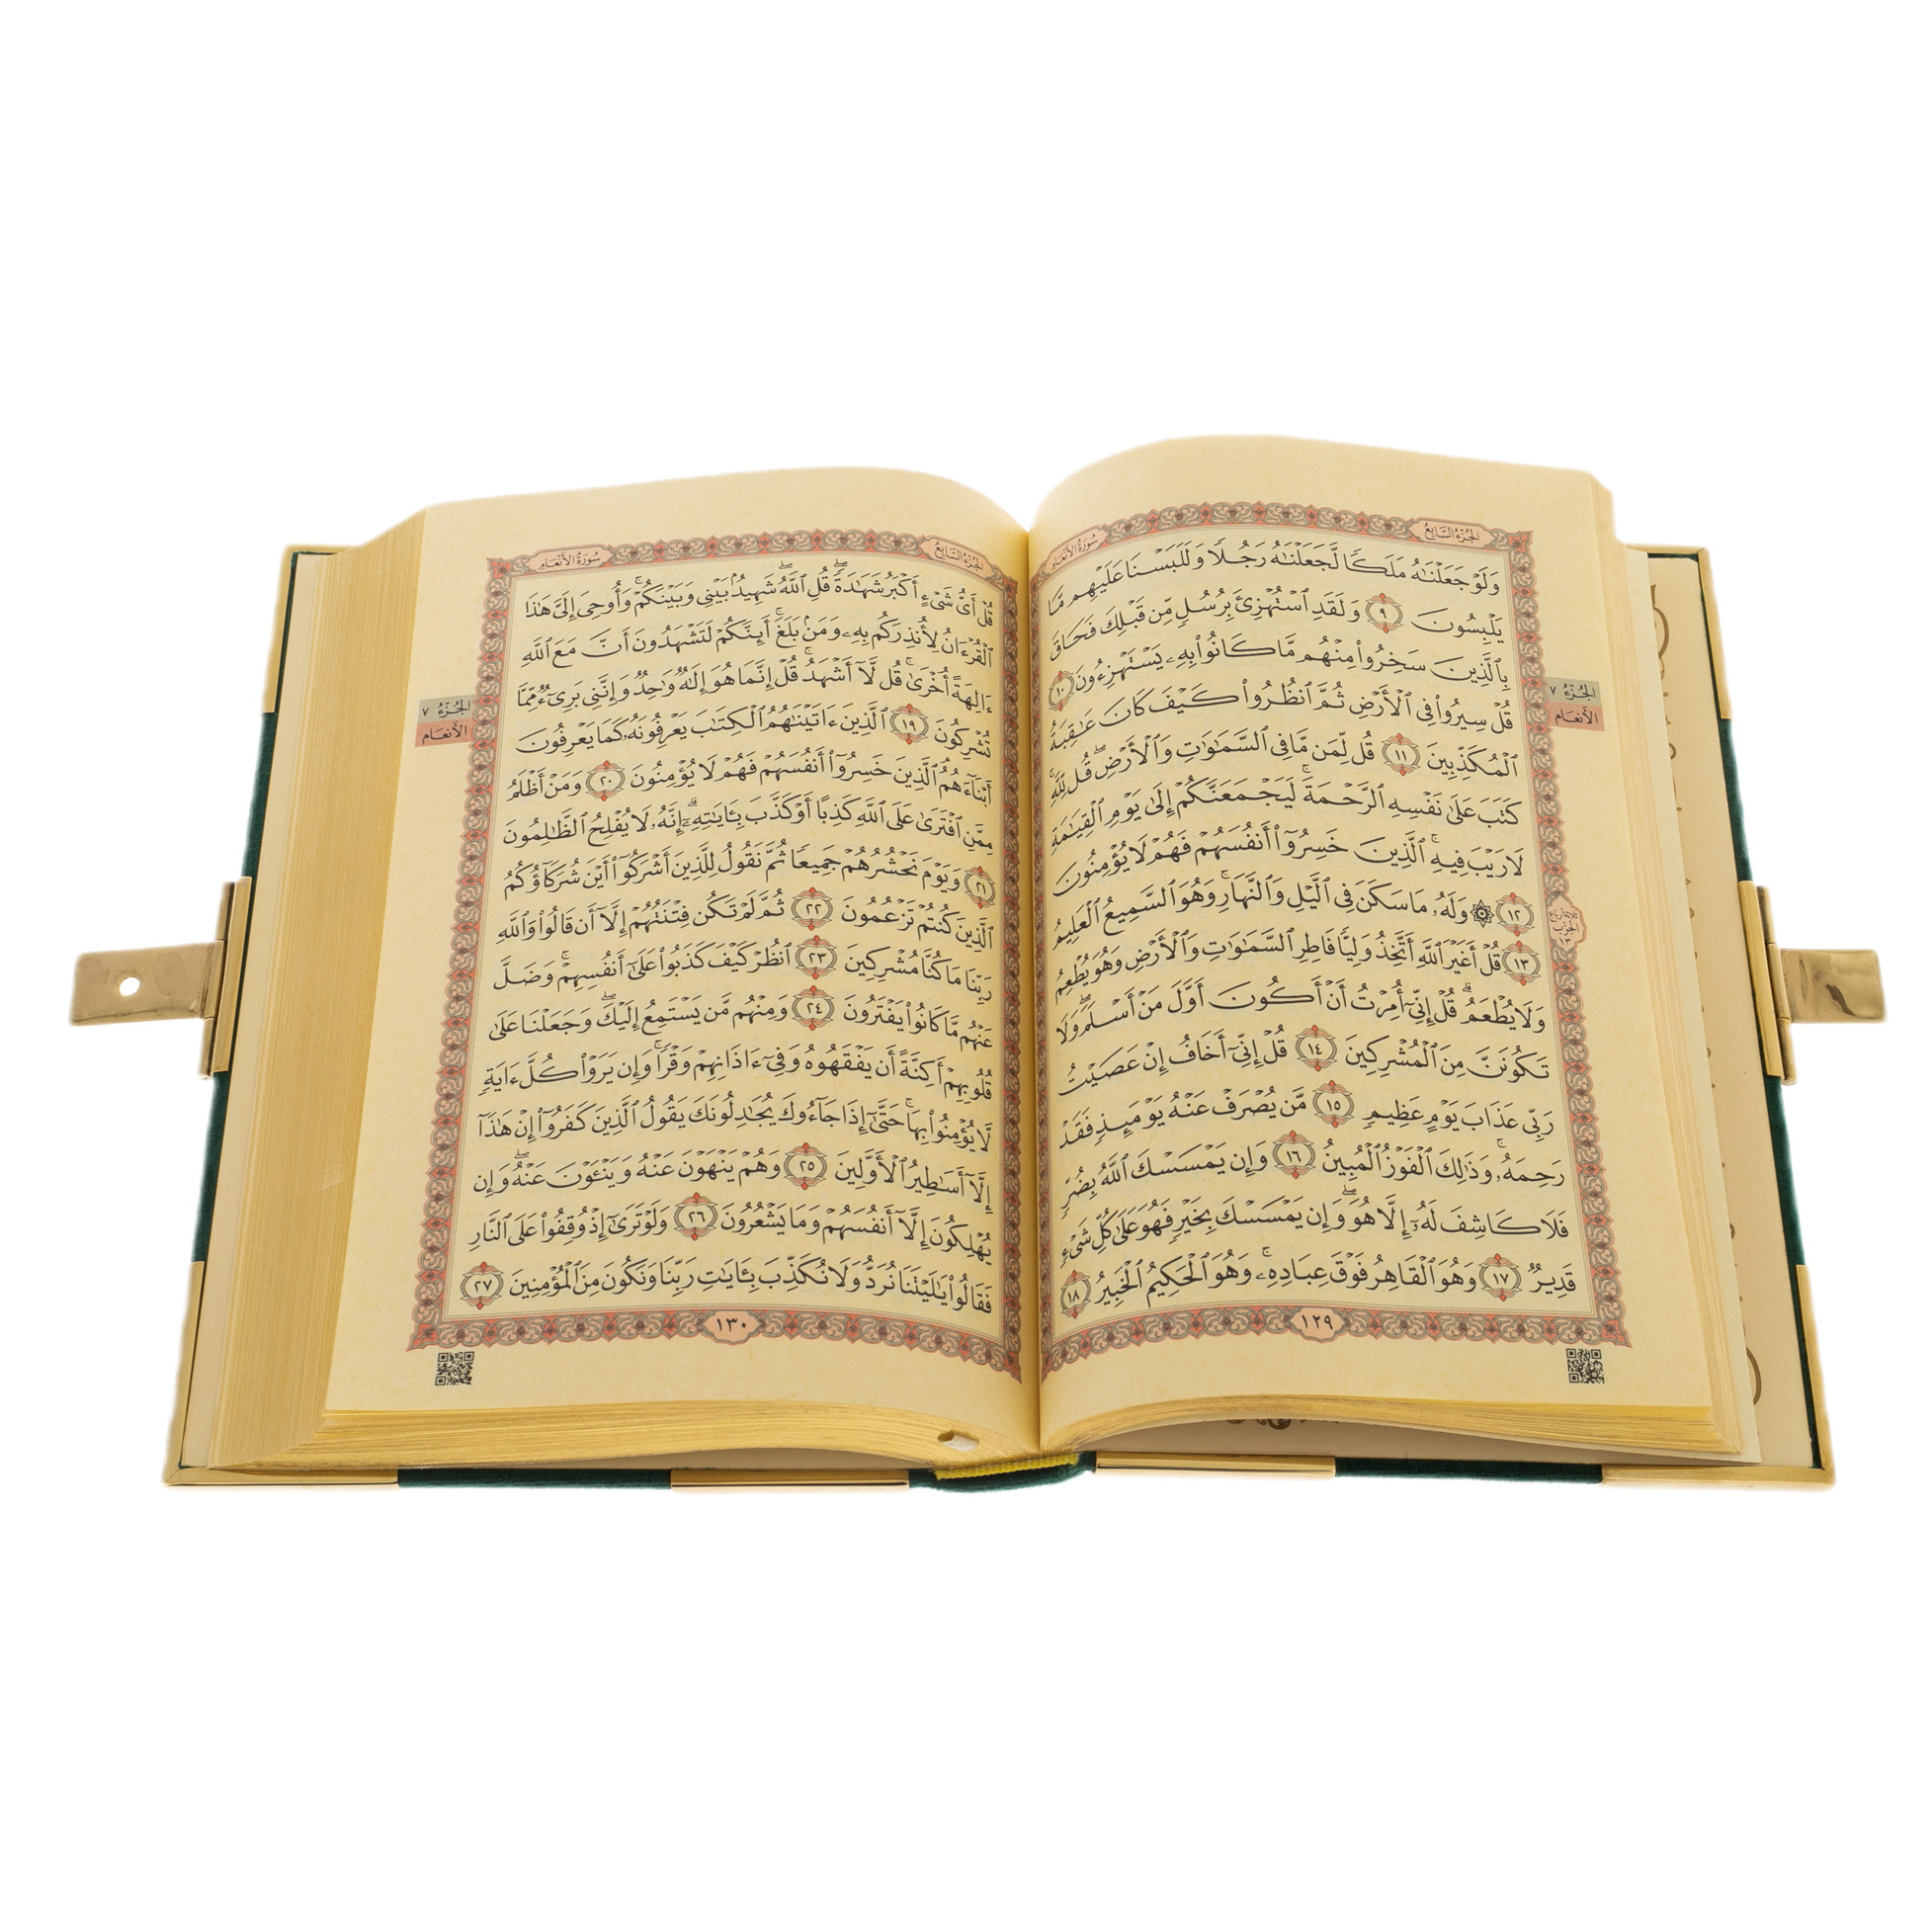 سُورَةُ الأَنْعَام
الجُزْءُ السَّابِعُ
وَلَوْ جَعَلْنَٰهُ مَلَكًا لَّجَعَلْنَٰهُ رَجُلًا وَلَلَبَسْنَا عَلَيْهِم مَّا
يَلْبِسُونَ ٩ وَلَقَدِ ٱسْتُهْزِئَ بِرُسُلٍ مِّن قَبْلِكَ فَحَاقَ
بِٱلَّذِينَ سَخِرُوا۟ مِنْهُم مَّا كَانُوا۟ بِهِۦ يَسْتَهْزِءُونَ ١٠
قُلْ سِيرُوا۟ فِى ٱلْأَرْضِ ثُمَّ ٱنظُرُوا۟ كَيْفَ كَانَ عَٰقِبَةُ
ٱلْمُكَذِّبِينَ ١١ قُل لِّمَن مَّا فِى ٱلسَّمَٰوَٰتِ وَٱلْأَرْضِ ۖ قُل لِّلَّهِ ۚ
كَتَبَ عَلَىٰ نَفْسِهِ ٱلرَّحْمَةَ ۚ لَيَجْمَعَنَّكُمْ إِلَىٰ يَوْمِ ٱلْقِيَٰمَةِ
لَا رَيْبَ فِيهِ ۚ ٱلَّذِينَ خَسِرُوٓا۟ أَنفُسَهُمْ فَهُمْ لَا يُؤْمِنُونَ
١٢ ۞ وَلَهُۥ مَا سَكَنَ فِى ٱلَّيْلِ وَٱلنَّهَارِ ۚ وَهُوَ ٱلسَّمِيعُ ٱلْعَلِيمُ
١٣ قُلْ أَغَيْرَ ٱللَّهِ أَتَّخِذُ وَلِيًّا فَاطِرِ ٱلسَّمَٰوَٰتِ وَٱلْأَرْضِ وَهُوَ يُطْعِمُ
وَلَا يُطْعَمُ ۗ قُلْ إِنِّىٓ أُمِرْتُ أَنْ أَكُونَ أَوَّلَ مَنْ أَسْلَمَ ۖ وَلَا
تَكُونَنَّ مِنَ ٱلْمُشْرِكِينَ ١٤ قُلْ إِنِّىٓ أَخَافُ إِنْ عَصَيْتُ
رَبِّى عَذَابَ يَوْمٍ عَظِيمٍ ١٥ مَّن يُصْرَفْ عَنْهُ يَوْمَئِذٍ فَقَدْ
رَحِمَهُۥ ۚ وَذَٰلِكَ ٱلْفَوْزُ ٱلْمُبِينُ ١٦ وَإِن يَمْسَسْكَ ٱللَّهُ بِضُرٍّ
فَلَا كَاشِفَ لَهُۥٓ إِلَّا هُوَ ۖ وَإِن يَمْسَسْكَ بِخَيْرٍ فَهُوَ عَلَىٰ كُلِّ شَىْءٍ
قَدِيرٌ ١٧ وَهُوَ ٱلْقَاهِرُ فَوْقَ عِبَادِهِۦ ۚ وَهُوَ ٱلْحَكِيمُ ٱلْخَبِيرُ ١٨
١٢٩
الجُزْءُ ٧
الأَنْعَام
الجُزْءُ السَّابِعُ
سُورَةُ الأَنْعَام
قُلْ أَىُّ شَىْءٍ أَكْبَرُ شَهَٰدَةً ۖ قُلِ ٱللَّهُ ۖ شَهِيدٌۢ بَيْنِى وَبَيْنَكُمْ ۚ وَأُوحِىَ إِلَىَّ هَٰذَا
ٱلْقُرْءَانُ لِأُنذِرَكُم بِهِۦ وَمَنۢ بَلَغَ ۚ أَئِنَّكُمْ لَتَشْهَدُونَ أَنَّ مَعَ ٱللَّهِ
ءَالِهَةً أُخْرَىٰ ۚ قُل لَّآ أَشْهَدُ ۚ قُلْ إِنَّمَا هُوَ إِلَٰهٌ وَٰحِدٌ وَإِنَّنِى بَرِىٓءٌ مِّمَّا
تُشْرِكُونَ ١٩ ٱلَّذِينَ ءَاتَيْنَٰهُمُ ٱلْكِتَٰبَ يَعْرِفُونَهُۥ كَمَا يَعْرِفُونَ
أَبْنَآءَهُمُ ٱلَّذِينَ خَسِرُوٓا۟ أَنفُسَهُمْ فَهُمْ لَا يُؤْمِنُونَ ٢٠ وَمَنْ أَظْلَمُ
مِمَّنِ ٱفْتَرَىٰ عَلَى ٱللَّهِ كَذِبًا أَوْ كَذَّبَ بِـَٔايَٰتِهِۦٓ ۗ إِنَّهُۥ لَا يُفْلِحُ ٱلظَّٰلِمُونَ
٢١ وَيَوْمَ نَحْشُرُهُمْ جَمِيعًا ثُمَّ نَقُولُ لِلَّذِينَ أَشْرَكُوٓا۟ أَيْنَ شُرَكَآؤُكُمُ
ٱلَّذِينَ كُنتُمْ تَزْعُمُونَ ٢٢ ثُمَّ لَمْ تَكُن فِتْنَتُهُمْ إِلَّآ أَن قَالُوا۟ وَٱللَّهِ
رَبِّنَا مَا كُنَّا مُشْرِكِينَ ٢٣ ٱنظُرْ كَيْفَ كَذَبُوا۟ عَلَىٰٓ أَنفُسِهِمْ ۚ وَضَلَّ
عَنْهُم مَّا كَانُوا۟ يَفْتَرُونَ ٢٤ وَمِنْهُم مَّن يَسْتَمِعُ إِلَيْكَ ۖ وَجَعَلْنَا عَلَىٰ
قُلُوبِهِمْ أَكِنَّةً أَن يَفْقَهُوهُ وَفِىٓ ءَاذَانِهِمْ وَقْرًا ۚ وَإِن يَرَوْا۟ كُلَّ ءَايَةٍ
لَّا يُؤْمِنُوا۟ بِهَا ۚ حَتَّىٰٓ إِذَا جَآءُوكَ يُجَٰدِلُونَكَ يَقُولُ ٱلَّذِينَ كَفَرُوٓا۟ إِنْ هَٰذَآ
إِلَّآ أَسَٰطِيرُ ٱلْأَوَّلِينَ ٢٥ وَهُمْ يَنْهَوْنَ عَنْهُ وَيَنْـَٔوْنَ عَنْهُ ۖ وَإِن
يُهْلِكُونَ إِلَّآ أَنفُسَهُمْ وَمَا يَشْعُرُونَ ٢٦ وَلَوْ تَرَىٰٓ إِذْ وُقِفُوا۟ عَلَى ٱلنَّارِ
فَقَالُوا۟ يَٰلَيْتَنَا نُرَدُّ وَلَا نُكَذِّبَ بِـَٔايَٰتِ رَبِّنَا وَنَكُونَ مِنَ ٱلْمُؤْمِنِينَ ٢٧
١٣٠
الجُزْءُ ٧
الأَنْعَام